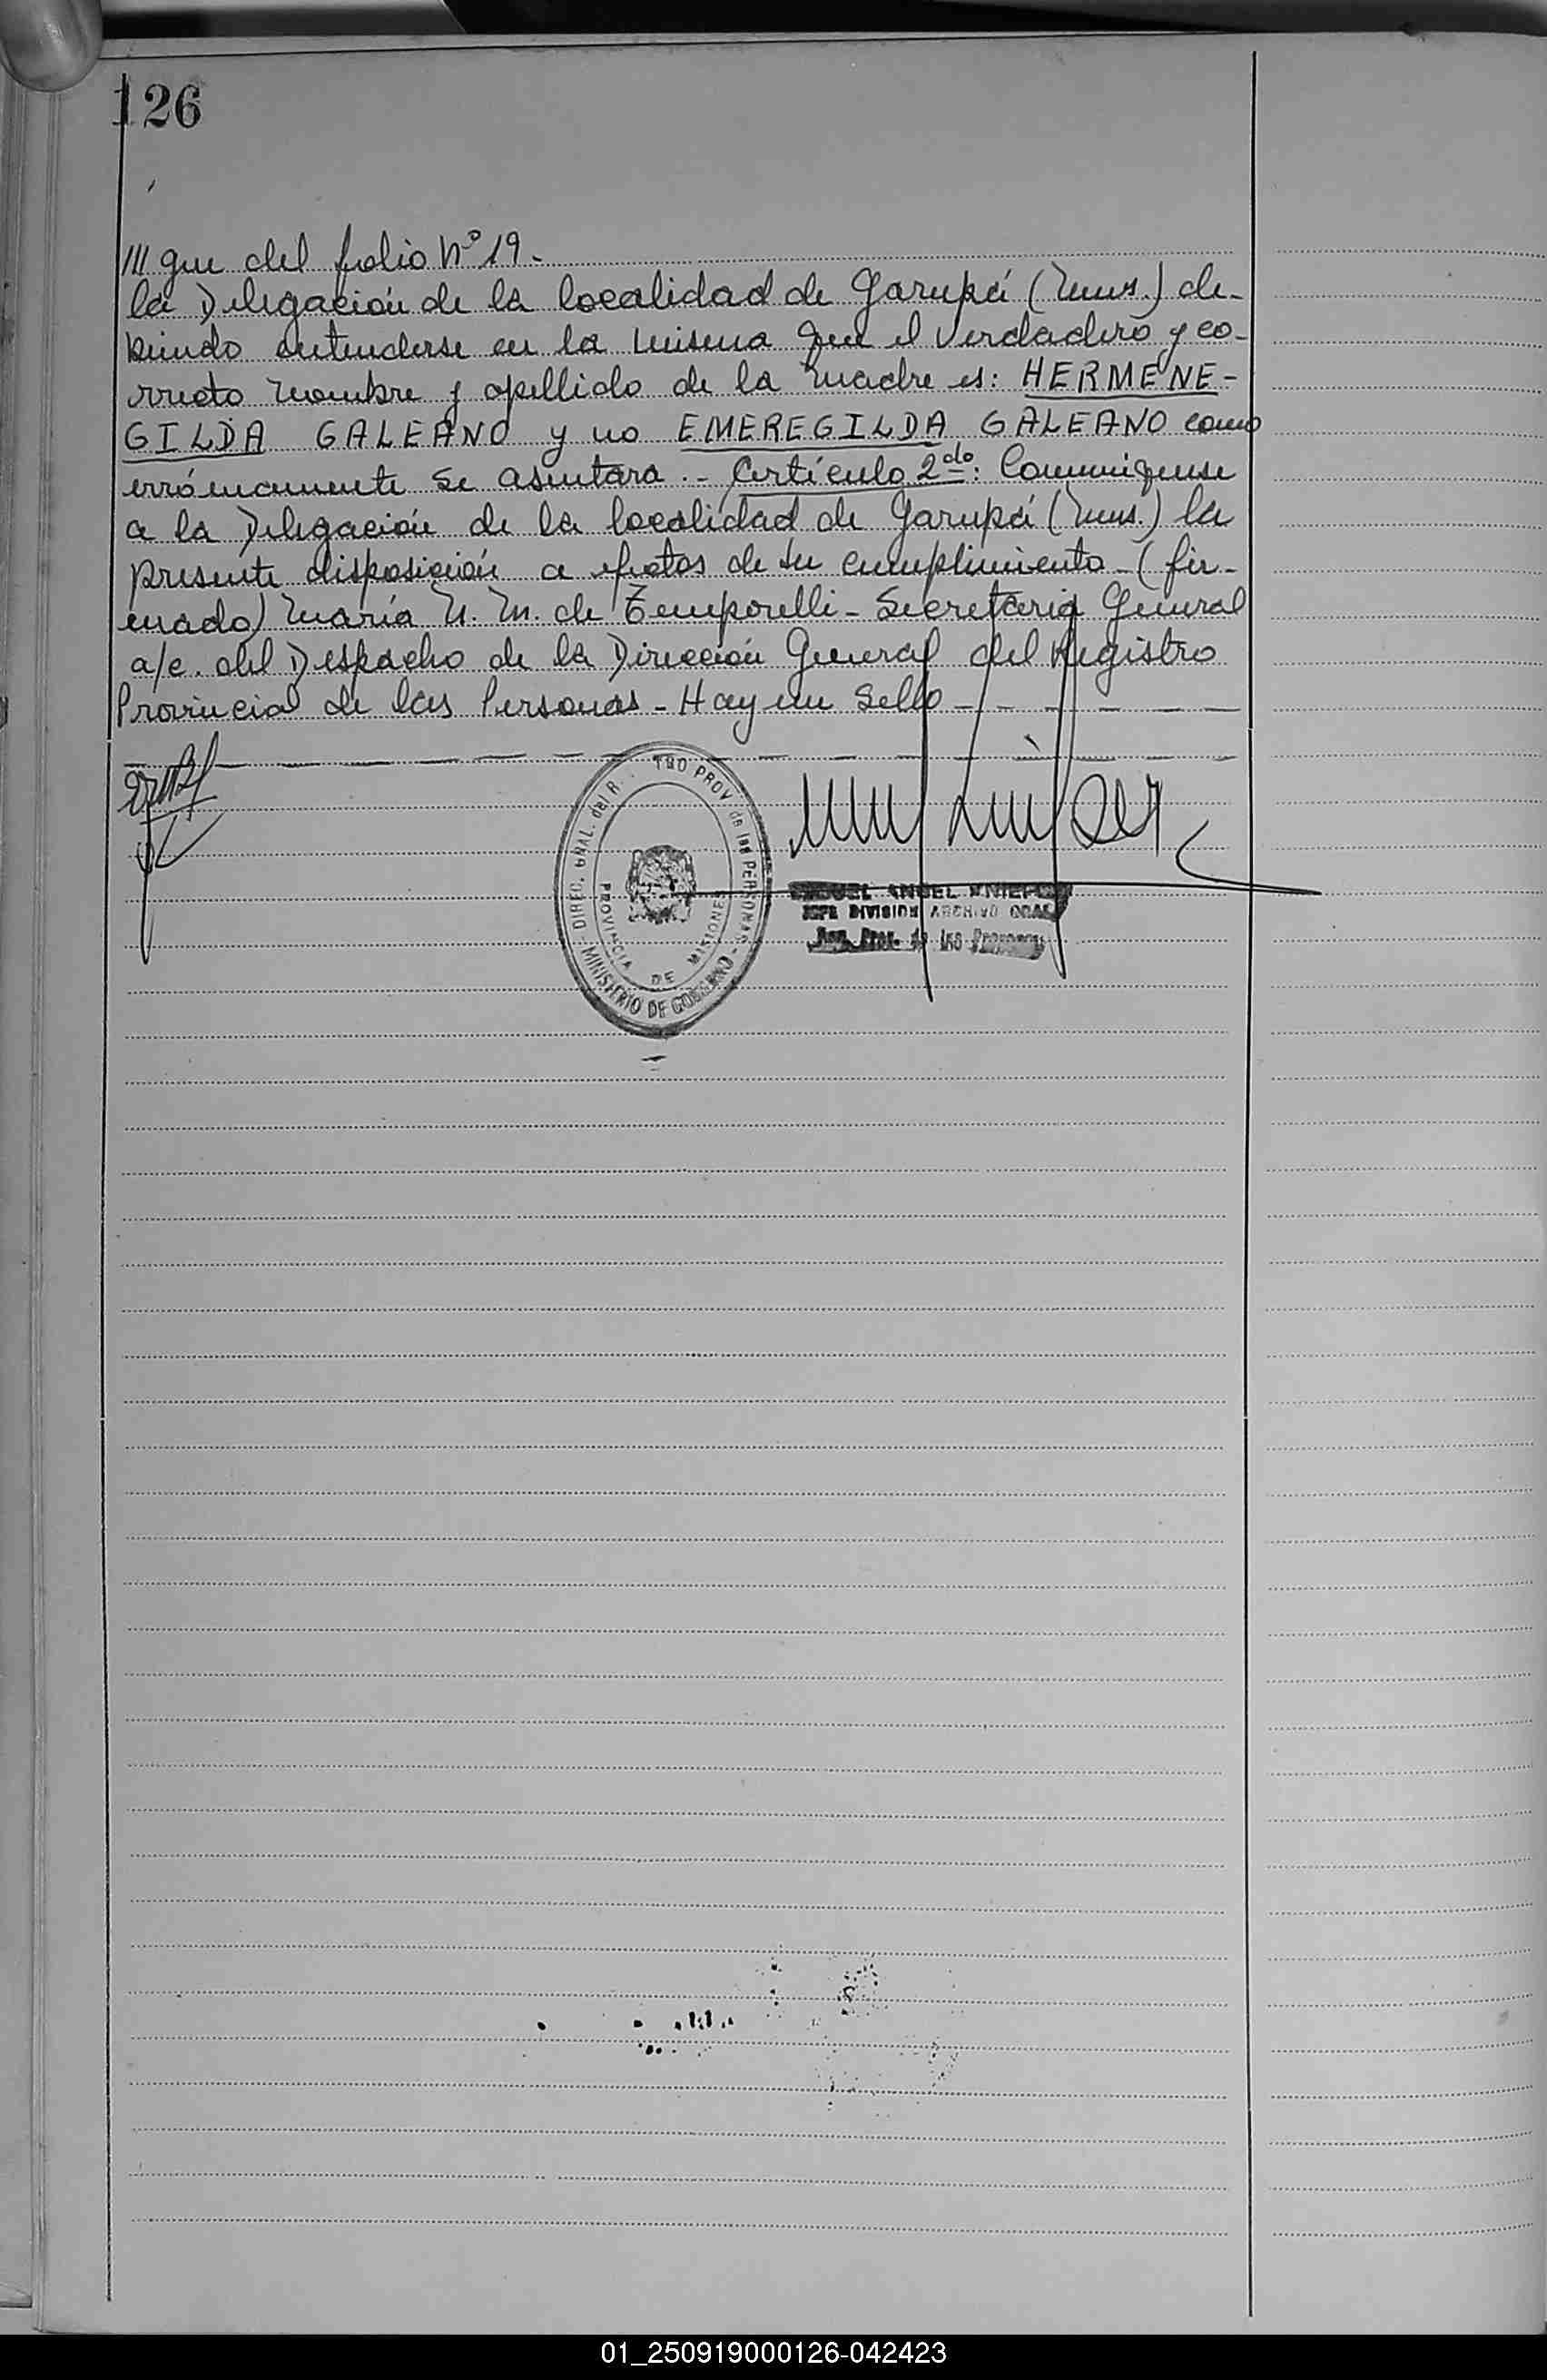 126
/// que del folio Nº 19.-
la Delegación de la localidad de Garupá (Mnes.) de-
biendo entenderse en la misma que el verdadero y co-
rrecto nombre y apellido de la madre es: HERMENE-
GILDA GALEANO y no EMEREGILDA GALEANO como
erróneamente se asentara.- Artículo 2do: Comuníquese
a la Delegación de la localidad de Garupá (Mnes.) la
presente disposición a efectos de su cumplimiento - (fir-
mado) María N. M. de Temporelli - Secretaria General
a/c. del Despacho de la Dirección General del Registro
Provincial de las Personas - Hay un Sello
DIREC. GRAL. del R. TRO PROV de las PERSONAS
MINISTERIO DE GOBIERNO
PROVINCIA DE MISIONES
ANGEL
JEFE DIVISION ARCHIVO GRAL
Reg. Prov. de las Personas
01_250919000126-042423